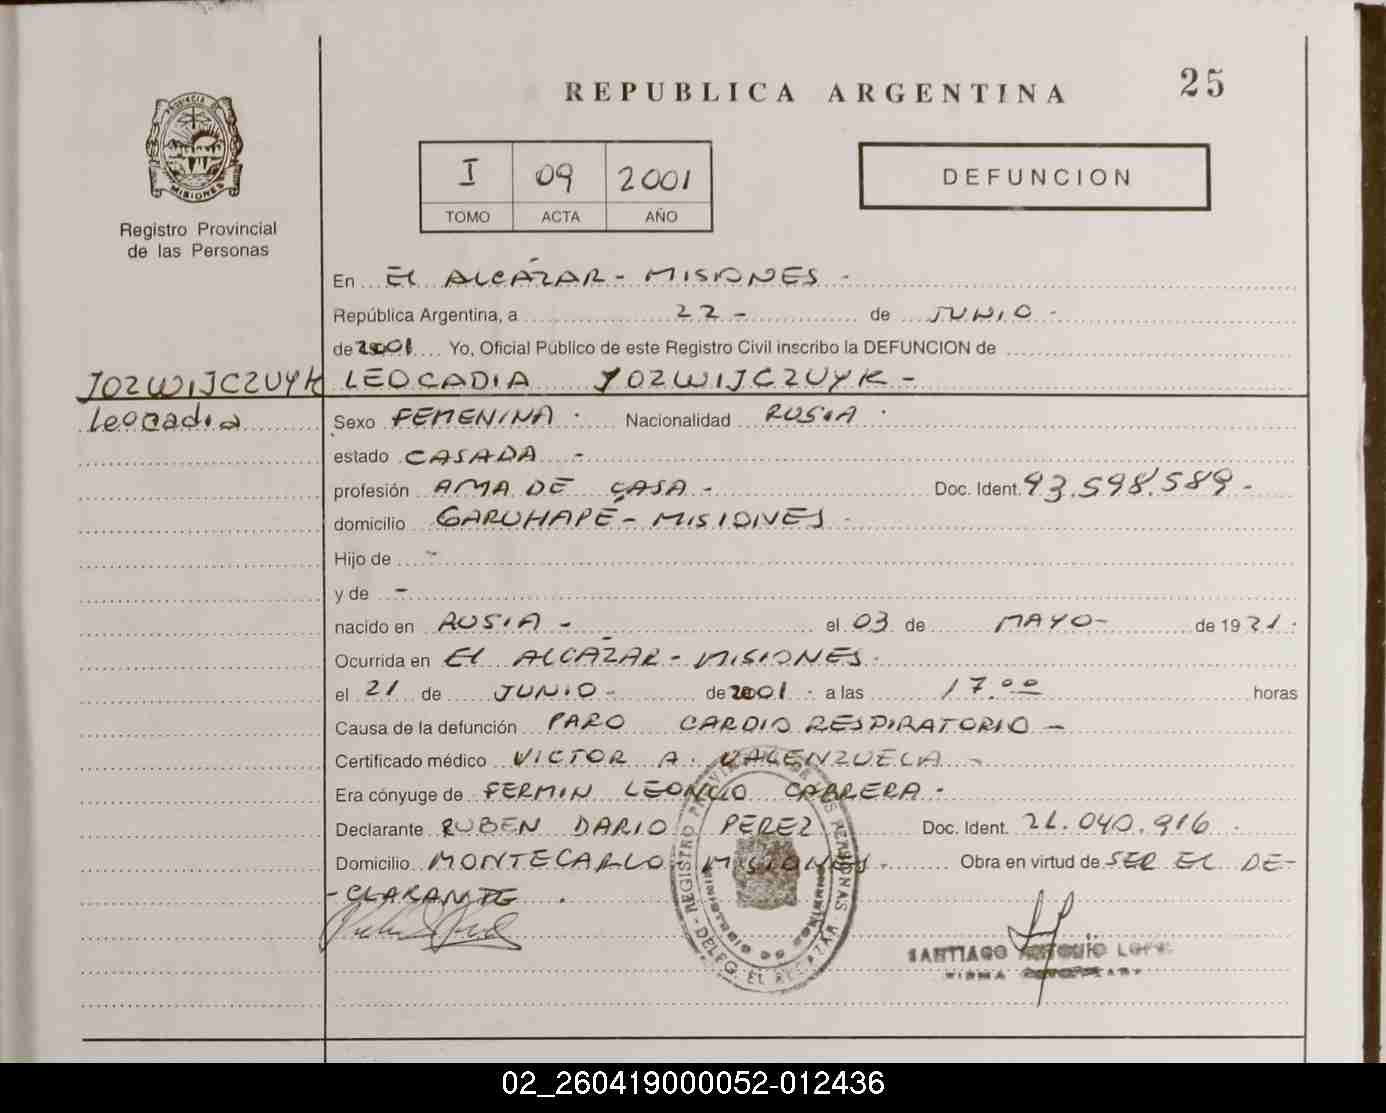 REPUBLICA ARGENTINA
25
PROVINCIA DE
MISIONES
Registro Provincial
de las Personas
I 09 2001
TOMO ACTA AÑO
DEFUNCION
En EL ALCÁZAR - MISIONES -
República Argentina, a 22 - de JUNIO -
de 2001 Yo, Oficial Público de este Registro Civil inscribo la DEFUNCION de
JOZWIJCZUYK
Leocadia
LEOCADIA JOZWIJCZUYK -
Sexo FEMENINA . Nacionalidad RUSIA .
estado CASADA -
profesión AMA DE CASA - Doc. Ident. 93.598.589 -
domicilio GARUHAPÉ - MISIONES -
Hijo de -
y de -
nacido en RUSIA - el 03 de MAYO - de 1921.
Ocurrida en EL ALCAZAR - MISIONES -
el 21 de JUNIO - de 2001 - a las 17.00 horas
Causa de la defunción PARO CARDIO RESPIRATORIO -
Certificado médico VICTOR A. VALENZUELA -
Era cónyuge de FERMIN LEONCIO CABRERA -
Declarante RUBEN DARIO PEREZ Doc. Ident. 21.040.916 .
Domicilio MONTECARLO MISIONES - Obra en virtud de SER EL DE-
-CLARANTE .
REGISTRO PROVINCIAL DE LAS PERSONAS
DELEG. EL ALCAZAR
SANTIAGO
FIRMA
02_260419000052-012436